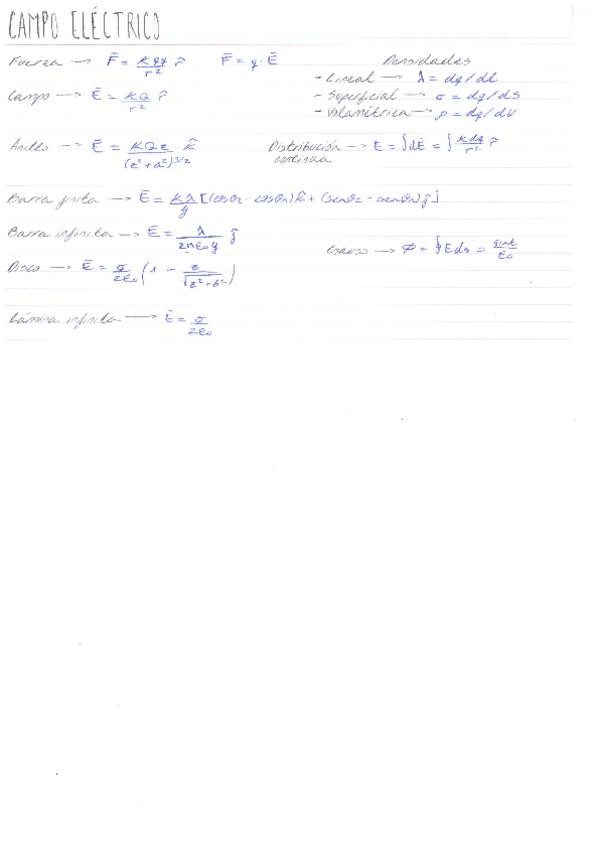 CAMPO ELÉCTRICO
Fuerza → F̄ = Kqq/r² r̂   F̄ = q · Ē
Densidades
- Lineal → λ = dq/dl
Campo → Ē = KQ/r² r̂
- Superficial → σ = dq/ds
- Volumétrica → ρ = dq/dv
Anillo → Ē = KQz/(z²+a²)^3/2 k̂
Distribución continua → E = ∫dĒ = ∫ Kdq/r² r̂
Barra finita → Ē = Kλ/y [(cosθ₂ - cosθ₁)î + (senθ₂ - senθ₁)ĵ]
Barra infinita → Ē = λ/2πε₀y ĵ
Gauss → Φ = ∮Eds = qint/ε₀
Disco → Ē = σ/2ε₀ (1 - z/√(z²+b²))
Lámina infinita → Ē = σ/2ε₀